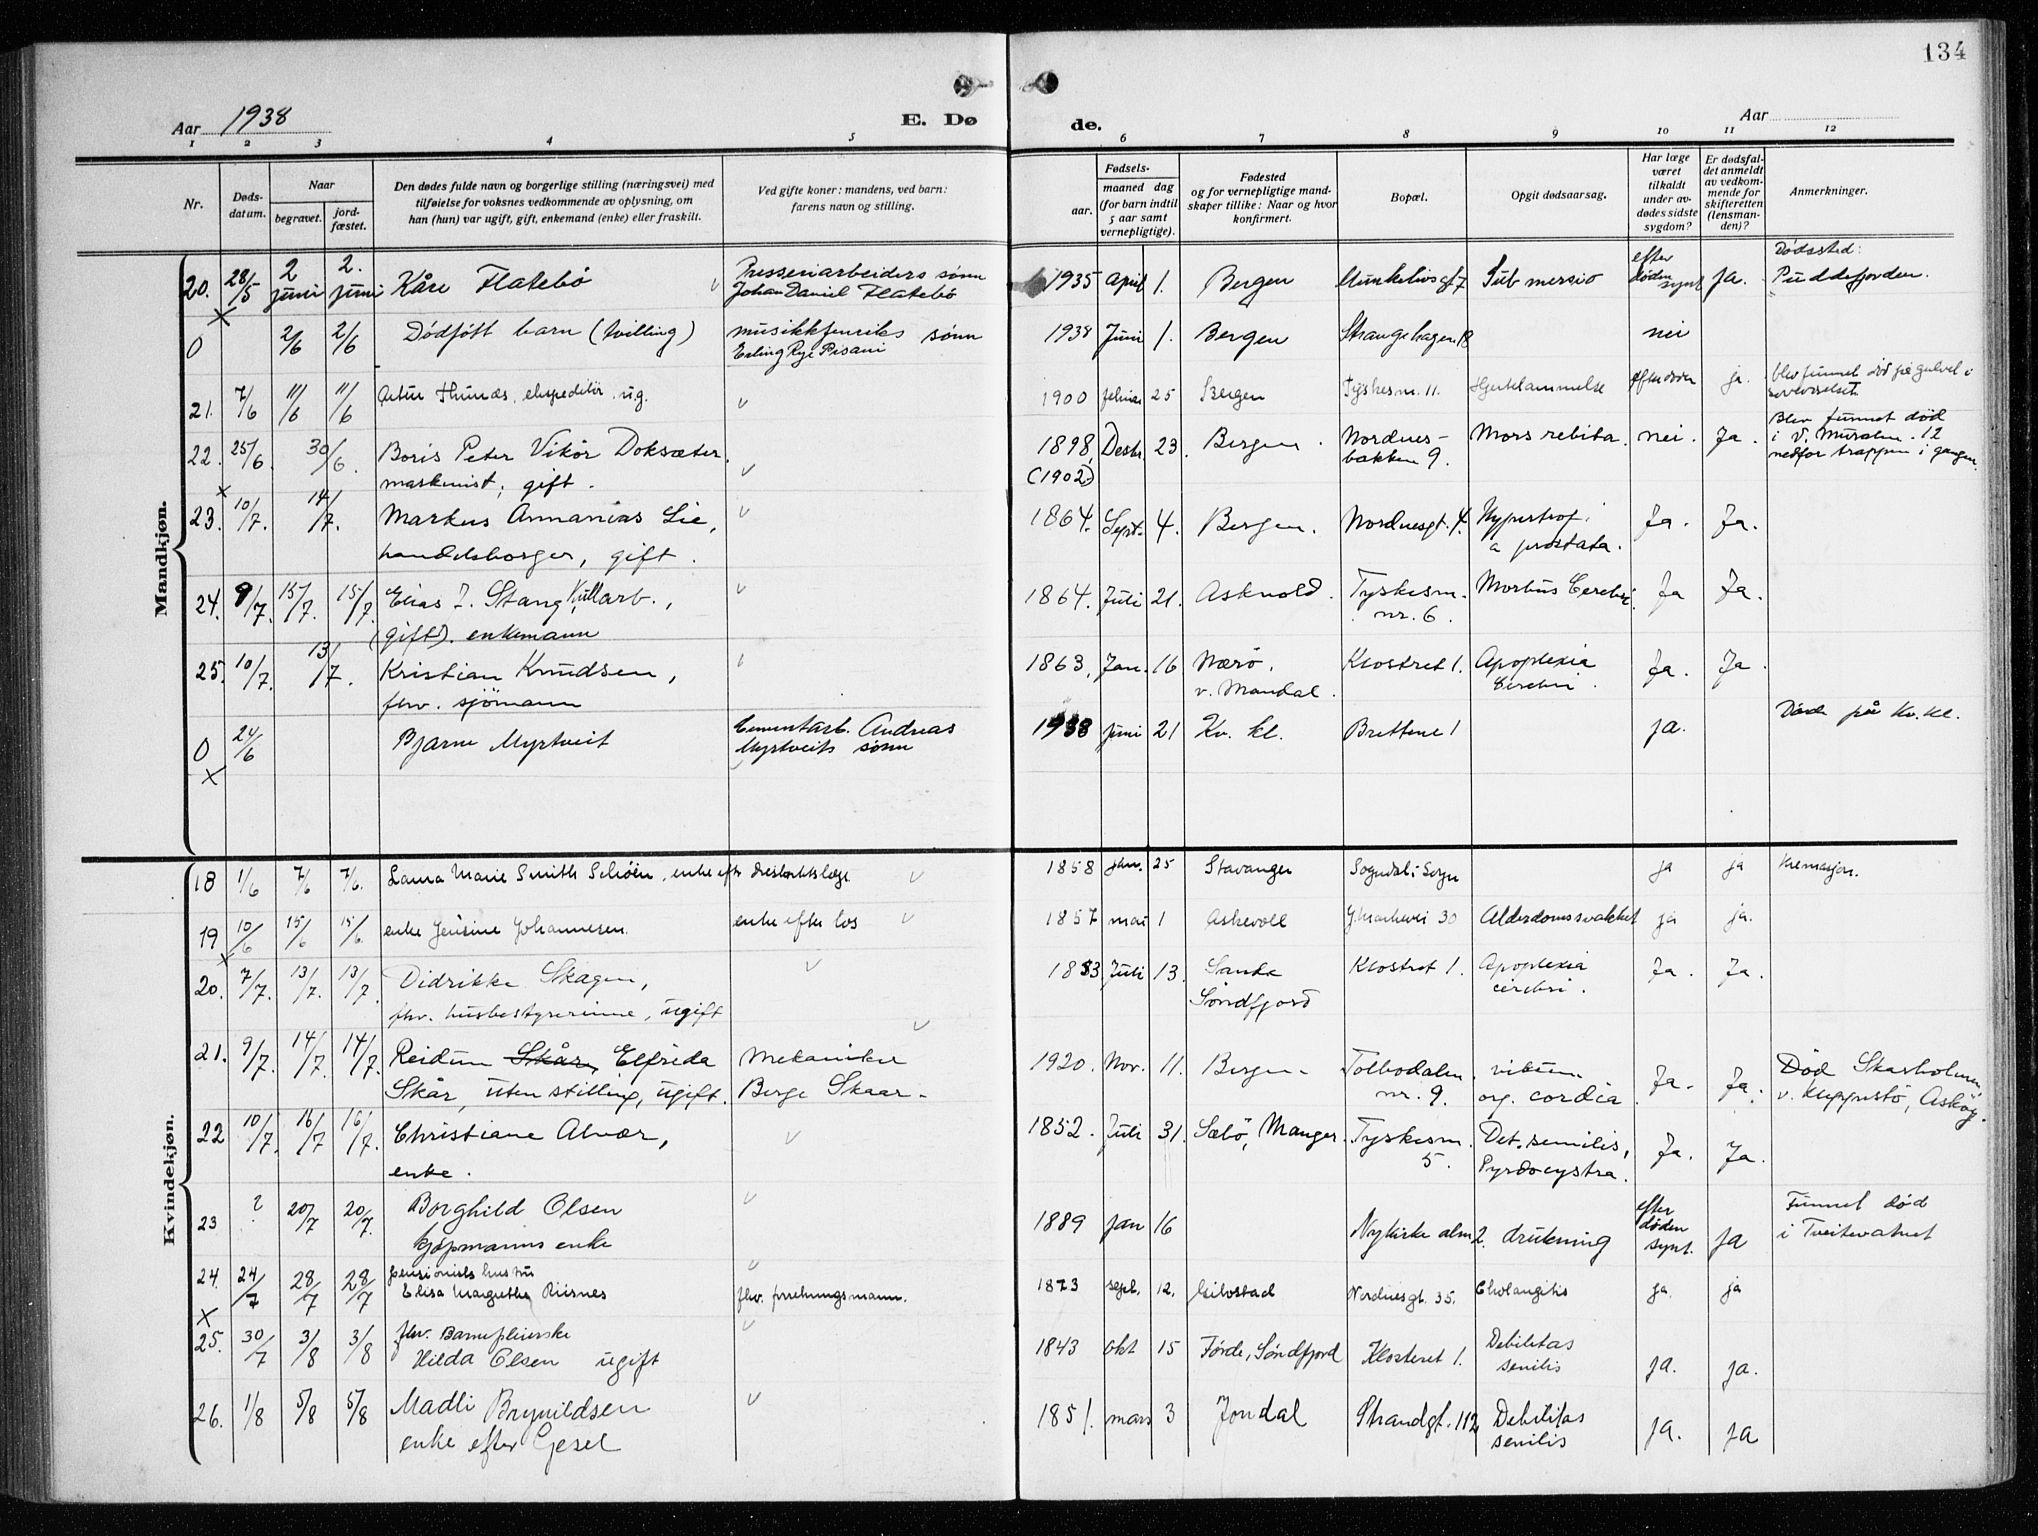 134
Aar 1938
E. Dø
de.
Aar
1 2 3 4 5 6 7 8 9 10 11 12
Nr.
Døds-
datum.
Naar
begravet.
jord-
fæstet.
Den dødes fulde navn og borgerlige stilling (næringsvei) med
tilføielse for voksnes vedkommende av oplysning, om
han (hun) var ugift, gift, enkemand (enke) eller fraskilt.
Ved gifte koner: mandens, ved barn:
farens navn og stilling.
Fødsels-
aar.
maaned dag
(for barn indtil
5 aar samt
vernepligtige).
Fødested
og for vernepligtige mand-
skaper tillike: Naar og hvor
konfirmert.
Bopæl.
Opgit dødsaarsag.
Har læge
været
tilkaldt
under av-
dødes sidste
sygdom?
Er dødsfal-
det anmeldt
av vedkom-
mende for
skifteretten
(lensman-
den)?
Anmerkninger.
Mandkjøn.
20. 28/5 2 juni 2. juni Kåre Flatebö Presseriarbeiders sønn Johan Daniel Flatebö 1935 April 1. Bergen Munkelivsgt 7 Submersio efter døden synt Ja. Dødssted: Puddefjorden.
0 2/6 2/6 Dødfött barn (tvilling) musikkfenriks sønn Erling Rye Pisani 1938 Juni 1. Bergen Strangehagen 18 nei
21. 7/6 11/6 11/6 Artur Thunæs, ekspeditör, ug. 1900 februar 25 Bergen Tyskesm. 11. Hjertelammelse efter døden ja. blev funnet død på gulvet i soveværelset
22. 25/6. 30/6. Boris Peter Vikör Doksæter, maskinist, gift. 1898, (1902) Desbr. 23. Bergen. Nordnes-bakken 9. Mors subita. nei. Ja. Blev funnet død i V. Muralm. 12 nedfor trappen i gangen.
23. 10/7. 14/7. Markus Annanias Lie, handelsborger, gift. 1864. Sept. 4. Bergen. Nordnesgt. 4. Hypertrof. a prostata. Ja. Ja.
24. 9/7. 15/7. 15/7. Elias I. Stang, Kullarb., (gift). enkemann 1864. Juli 21. Askvold. Tyskesm. nr. 6. Morbus Cerebri. Ja Ja.
25. 10/7. 13/7. Kristian Knudsen, fhv. sjömann 1863. Jan. 16 Nærö, v. Mandal. Klostret 1. Apoplexia Cerebri. Ja. Ja.
0 24/6 Bjarne Myrtveit Cementarb. Andreas Myrtveits sønn 1938 Juni 21 Kv. kl. Brettene 1 ja. Døde på Kv. kl.
Kvindekjøn.
18 1/6 7/6 7/6. Laura Marie Smith Schöien, enke eft. distriktslæge 1858 jan. 25 Stavanger Sogndal i Sogn ja ja Kremasjon.
19 10/6 15/6 15/6. enke Jensine Johannesen. enke efter los 1857 mai 1 Askevoll Y. Markevei 30 Alderdomssvakhet ja ja.
20. 7/7. 13/7. 13/7. Didrikke Skagen, fhv. husbestyrerinne, ugift 1853 Juli 13. Sande Söndfjord Klostret 1. Apoplexia cerebri. Ja. Ja.
21. 9/7. 14/7. 14/7. Reidun Skår, Elfrida Skår, uten stilling, ugift. Mekaniker Berge Skaar. 1920. Nov. 11. Bergen Tolbodalm. nr. 9. vitium org. cordia. Ja. Ja. Död Skarholmen, v. Kleppestö, Asköy.
22 10/7. 16/7 16/7. Christiane Alvær, enke. 1852. Juli 31. Sæbö, Manger. Tyskesm. 5. Det. senilis, Pyrdocystra. Ja. Ja.
23 ? 20/7 20/7. Borghild Olsen kjøpmanns enke 1889 Jan 16 Nykirke alm 2. drukning efter døden synt. Ja Funnet død i Tveitevatnet
24. 24/7 28/7 28/7 pensionists hustru Elisa Margrethe Riisnes fhv. forretningsmann. 1873 sept. 12. Gibostad Nordnesgt. 35. Cholangitis ja. ja
25. 30/7 3/8 3/8 fhv. Barnepleierske Hilda Olsen ugift 1843 okt 15 Førde, Søndfjord Klosteret 1. Debilitas senilis ja. ja.
26. 1/8 5/8 5/8 Madli Brynildsen enke efter Gesel 1851. mars 3 Jondal Strandgt. 112 Debilitas senilis ja. ja